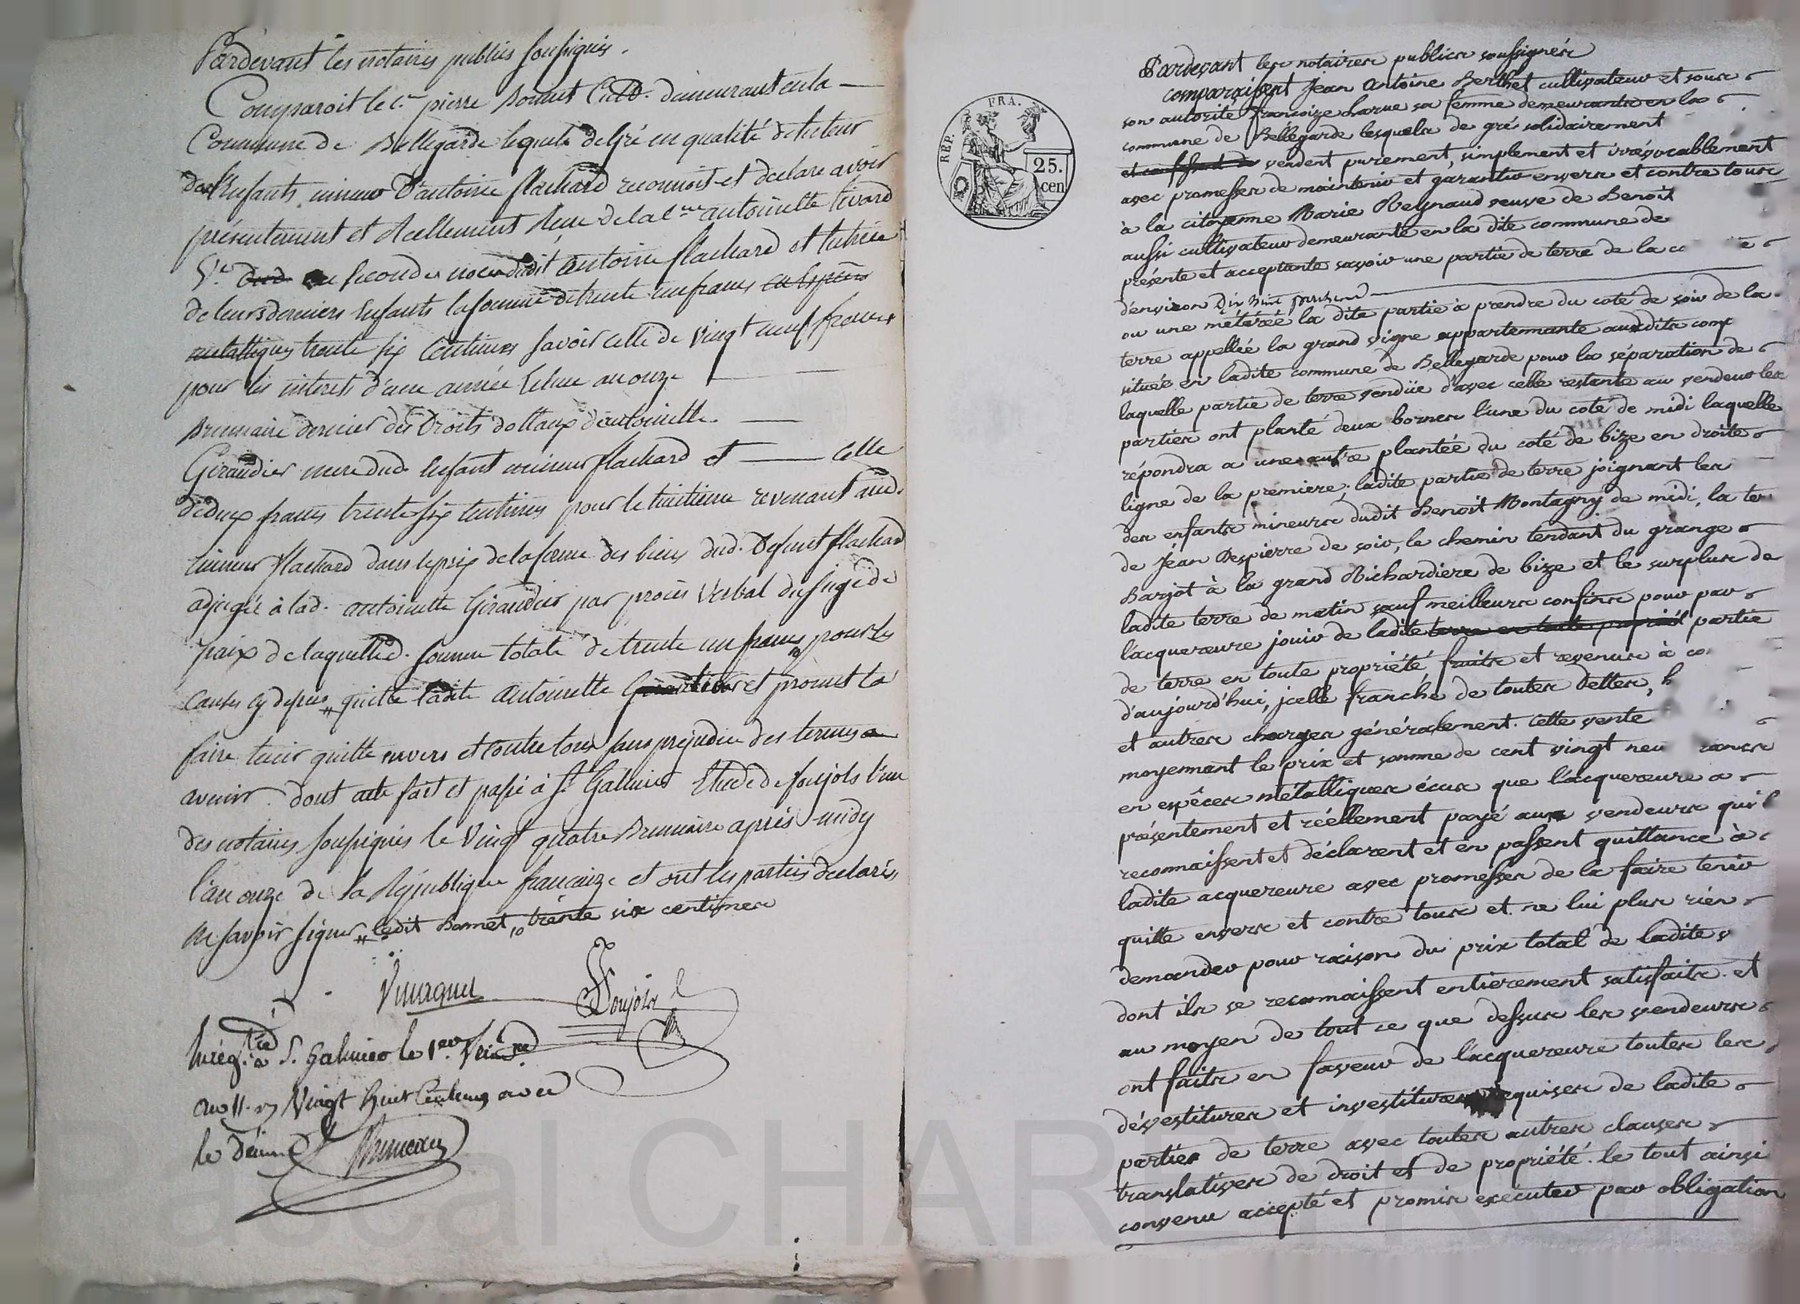 Pardevant les notaires publics soussignés.
Comparoit le c.en pierre Bonnet Cult. demeurant en la
Commune de Bellegarde lequel de gré en qualité de tuteur
des Enfants mineur d'antoine flachard reconnoit et declare avoir
présentement et Réellement Reçu de la c.ne antoinette Givard
V.e en secondes noces dudit antoine flachard et tutrice
de leurs derniers Enfants la somme de trente un francs
trente six Centimes savoir celle de vingt neuf francs
pour les interets d'une année Echue au onze
Brumaire dernier des Droits dottaux d'antoinette
Giraudier mere dud. Enfant mineur flachard et celle
de deux francs trente six centimes pour le revenant aud.
mineur flachard dans le prix de la ferme des biens dud. Defunt flachard
adjugée à lad. antoinette Giraudier par procès Verbal du juge de
paix de laquelle d. somme totale de trente un francs pour les
causes cy dessus quitte ladite antoinette et promet la
faire tenir quitte envers et contre tous sans préjudice des termes a
avenir. dont acte fait et passé à S.t Galmier Etude de Soujols l'un
des notaires soussignés le vingt quatre Brumaire après midy
l'an onze de la République francaize et ont les parties declaré
ne savoir signer ledit Bonnet, trente six centimes
Soujols
Enreg.tré à S. Galmier le 1.er
an 11. Vingt huit Centimes avec
le Décime
Bruneau
REP. FRA.
25. cen
Pardevant les notaires publics soussignés
comparaissent Jean Antoine Berthet cultivateur et sous
son autorité françoize sa femme demeurants en la
commune de Bellegarde lesquels de gré solidairement
vendent purement, simplement et irrévocablement
avec promesses de maintenir et garantir envers et contre tous
à la citoyenne Marie Reynaud veuve de Benoit
aussi cultivateur demeurante en la dite commune de
présente et acceptante savoir une partie de terre de la
d'environ
ou une métérée la dite partie à prendre du coté de soir de la
terre appellée la grand vigne appartenante audits
située en ladite commune de Bellegarde pour la séparation de
laquelle partie de terre vendüe d'avec celle restante au vendeur les
parties ont planté deux bornes l'une du coté de midi laquelle
répondra a une autre plantée du coté de bize en droite
ligne de la premiere. ladite partie de terre joignant les
des enfants mineurs dudit Benoit Montagny de midi, la
de Jean Despierre de soir, le chemin tendant du grange
Barjot à la grand Richardiere de bize et le surplus de
ladite terre de matin sauf meilleurs confins pour par
l'acquereure jouir de ladite partie
de terre en toute propriété fruits et revenus à
d'aujourd'hui, jcelle franche de toutes dettes,
et autres charges généralement. cette vente
moyennant le prix et somme de cent vingt
en espêces métalliques écus que l'acquereure a
présentement et réellement payé aux vendeurs
reconnaissent et déclarent et en passent quittance à
ladite acquereure avec promesses de la faire tenir
quitte envers et contre tous et ne lui plus rien
demander pour raison du prix total de ladite
dont ils se reconnaissent entierement satisfaits. et
au moyen de tout ce que dessus les vendeurs
ont faits en faveur de l'acquereure toutes les
dévestitures et investitures requises de ladite
parties de terre avec toutes autres clauses
translatives de droit et de propriété. le tout ainsi
convenu accepté et promis exécuter par obligation
Pascal CHAR